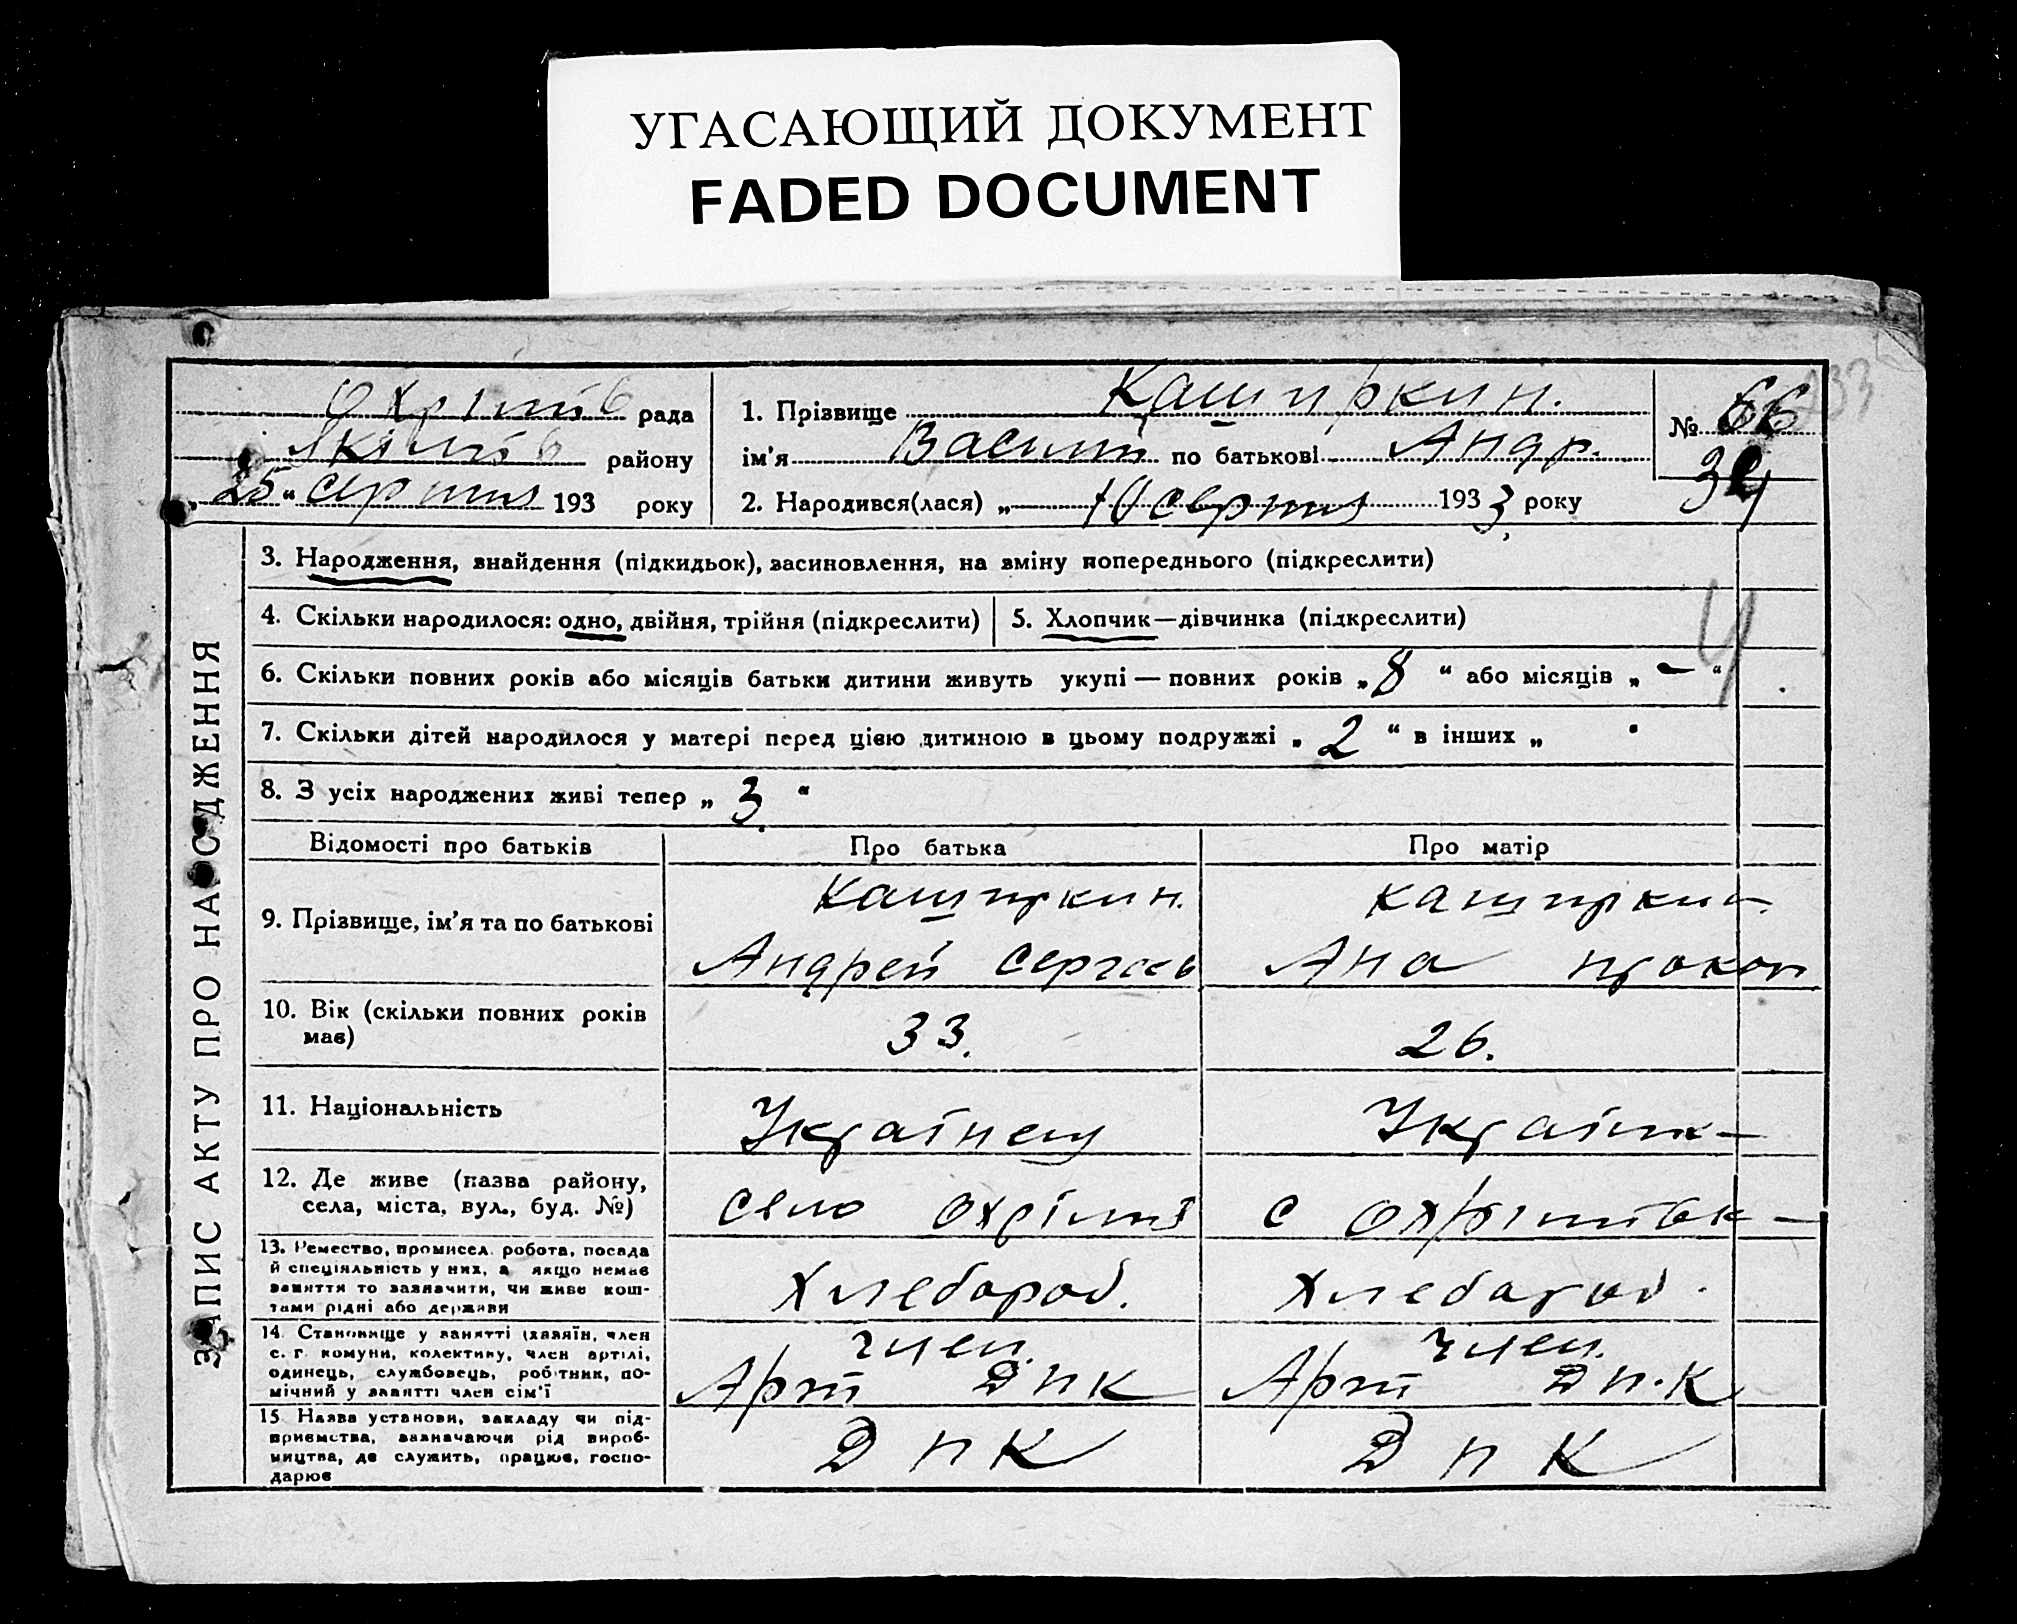 УГАСАЮЩИЙ ДОКУМЕНТ
FADED DOCUMENT
Охрімів рада
Якімів району
„25“ серпня 193 року
1. Прізвище Каширкин.
ім'я Василь по батькові Андр.
2. Народився(лася) „10 серпня 1933 року
№ 66
34
133
3. Народження, знайдення (підкидьок), засиновлення, на зміну попереднього (підкреслити)
4. Скільки народилося: одно, двійня, трійня (підкреслити)
5. Хлопчик—дівчинка (підкреслити)
6. Скільки повних років або місяців батьки дитини живуть укупі — повних років „8“ або місяців „—“
7. Скільки дітей народилося у матері перед цією дитиною в цьому подружжі „2“ в інших „ “
8. З усіх народжених живі тепер „3“
ЗАПИС АКТУ ПРО НАРОДЖЕННЯ
Відомості про батьків Про батька Про матір
9. Прізвище, ім'я та по батькові
Каширкин.
Андрей Сергеев
Каширкин
Ана Прокоп
10. Вік (скільки повних років
має)
33.
26.
11. Національність
Українец
Українк
12. Де живе (назва району,
села, міста, вул., буд. №)
село Охрімів
с Охрімівк
13. Ремество, промисел, робота, посада
й спеціяльність у них, а якщо немає
заняття то зазначити, чи живе кош-
тами рідні або держави
Хлебороб.
Хлебороб.
14. Становище у занятті (хазяїн, член
с. г. комуни, колективу, член артілі,
одинець, службовець, робітник, по-
мічний у занятті член сім'ї
член.
Арт ДПК
член.
Арт ДП.К
15. Назва установи, закладу чи під-
приємства, зазначаючи рід вироб-
ництва, де служить, працює, госпо-
дарює
ДПК
ДПК